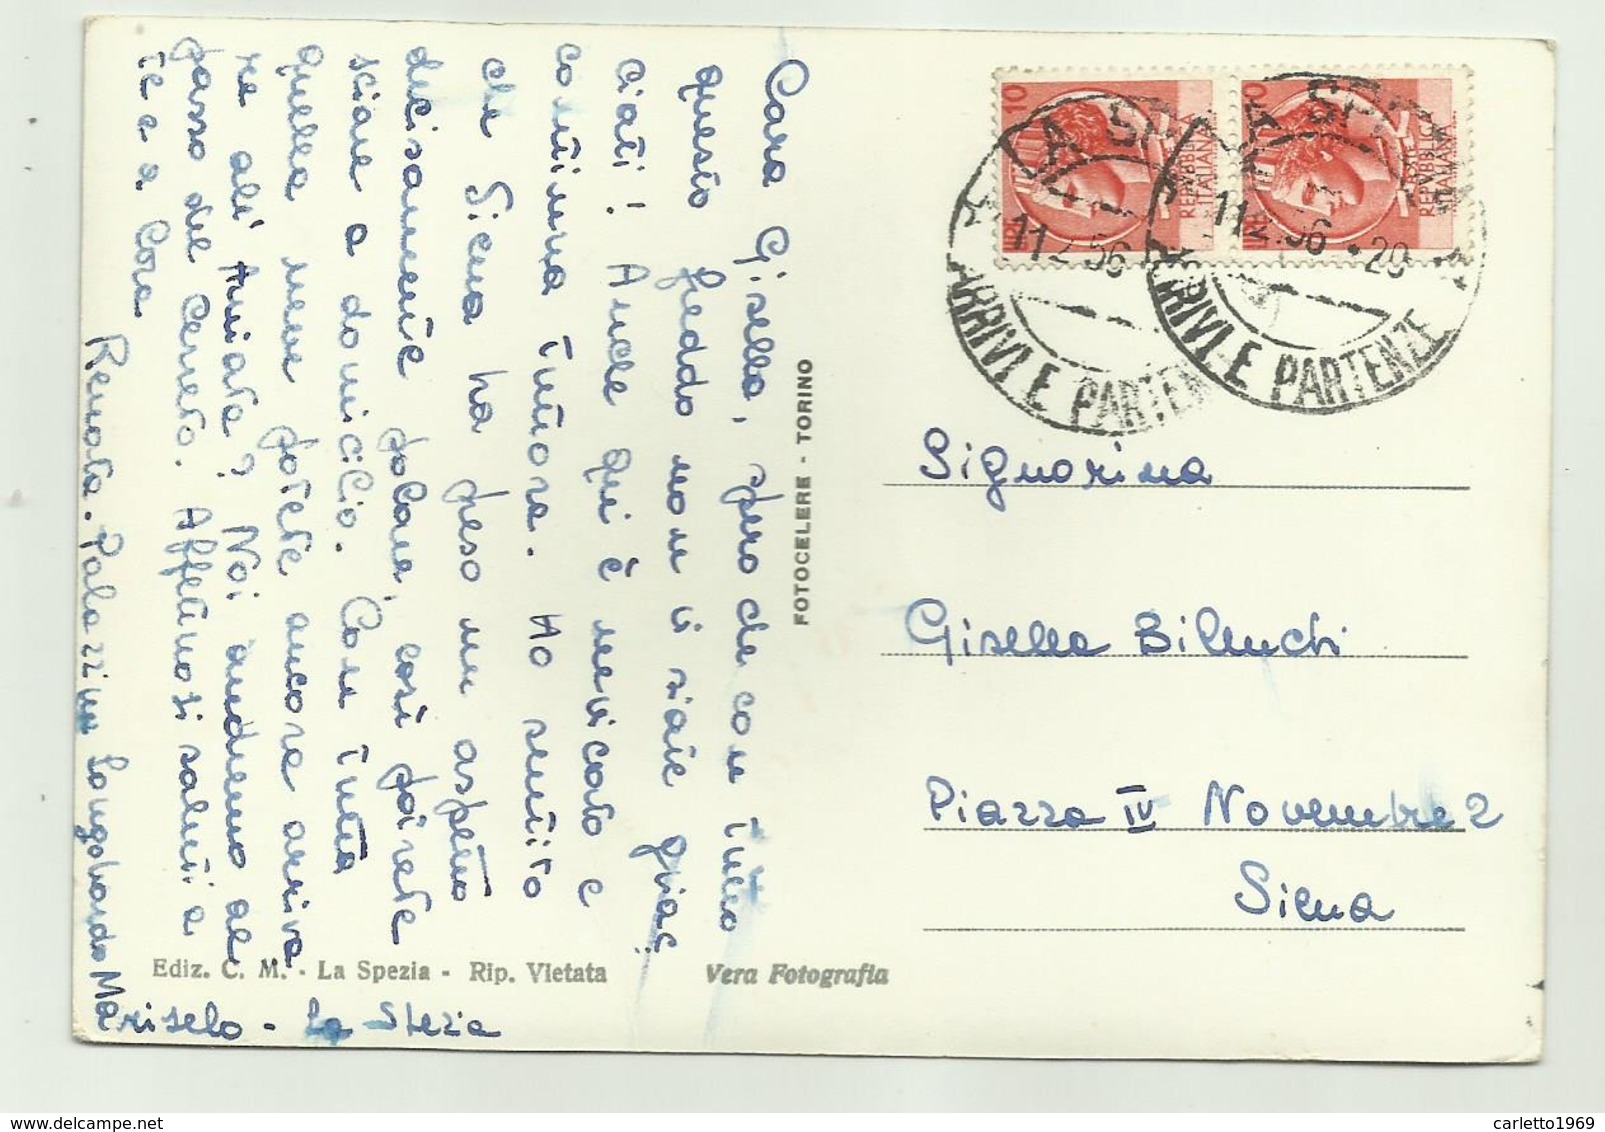 Cara Gisella, spero che con tutto
questo freddo non vi siate ghiac
ciati! Anche qui è nevicato e
continua tuttora. Ho sentito
che Siena ha preso un aspetto
decisamente polare, così potrete
sciare a domicilio. Con tutta
quella neve potete ancora arriva
re all'Amiata? Noi andremo al
passo del Cerreto. Affettuosi saluti a
te e a Cora
Renata. Palazzina Longobardo
Mariselo - La Spezia
FOTOCELERE - TORINO
Ediz. C. M. - La Spezia - Rip. Vietata
Vera Fotografia
10
LIRE
REPUBBLICA
ITALIANA
10
LIRE
REPUBBLICA
ITALIANA
LA SPEZIA
11.2.56
ARRIVI E PARTENZE
LA SPEZIA
11.2.56 - 20
ARRIVI E PARTENZE
Signorina
Gisella Bilenchi
Piazza IV Novembre 2
Siena
carletto1969